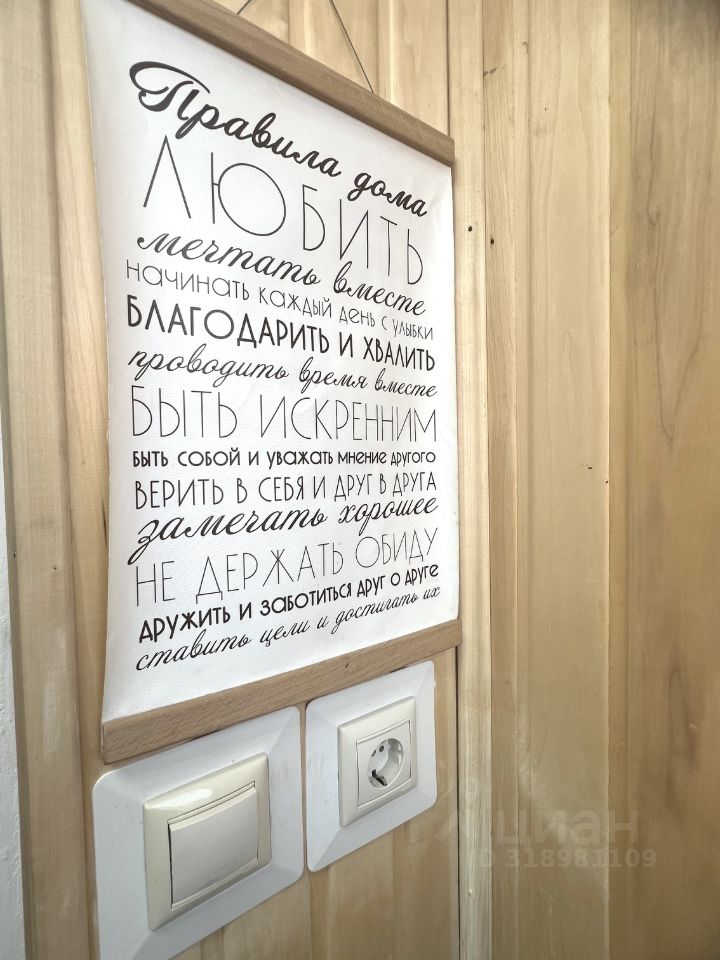 Правила дома
ЛЮБИТЬ
мечтать вместе
начинать каждый день с улыбки
БЛАГОДАРИТЬ И ХВАЛИТЬ
проводить время вместе
БЫТЬ ИСКРЕННИМ
БЫТЬ СОБОЙ И УВАЖАТЬ МНЕНИЕ ДРУГОГО
ВЕРИТЬ В СЕБЯ И ДРУГ В ДРУГА
замечать хорошее
НЕ ДЕРЖАТЬ ОБИДУ
ДРУЖИТЬ И ЗАБОТИТЬСЯ ДРУГ О ДРУГЕ
ставить цели и достигать их
циан
ID 318981109